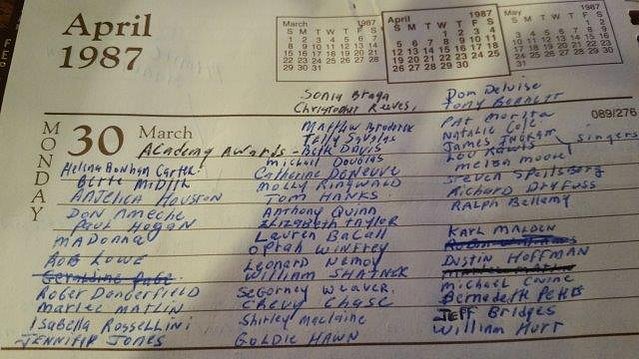 April
1987
March 1987
S M T W T F S
1 2 3 4 5 6 7
8 9 10 11 12 13 14
15 16 17 18 19 20 21
22 23 24 25 26 27 28
29 30 31
April 1987
S M T W T F S
1 2 3 4
5 6 7 8 9 10 11
12 13 14 15 16 17 18
19 20 21 22 23 24 25
26 27 28 29 30
May 1987
S M T W T F S
1 2
3 4 5 6 7 8 9
10 11 12 13 14 15 16
17 18 19 20 21 22 23
24 25 26 27 28 29 30
31
089/276
MONDAY
30 March
Academy Awards - Bette Davis
Helena Bonham Carter
Bette Midler
Anjelica Houston
Don Ameche
Paul Hogan
Madonna
Rob Lowe
Geraldine Page
Roger Dangerfield
Marlee Matlin
Isabella Rossellini
Jennifer Jones
Sonia Braga
Christopher Reeves,
Matthew Broderik
Telly Savalas
Michael Douglas
Catherine Deneuve
Molly Ringwald
Tom Hanks
Anthony Quinn
Elizabeth Taylor
Lauren Bacall
Oprah Winfrey
Leonard Nemoy
William Shatner
Segorney Weaver
Chevy Chase
Shirley Maclaine
Goldie Hawn
Dom Deluise
Tony Bennett
Pat Morita
Natalie Cole
James Ingram
Lou Rawls
Singers
Melba Moore
Steven Speilsberg
Richard Dryfuss
Ralph Bellamy
Karl Malden
Robin Williams
Dustin Hoffman
Michael Caine
Bernadette Peters
Jeff Bridges
William Hurt